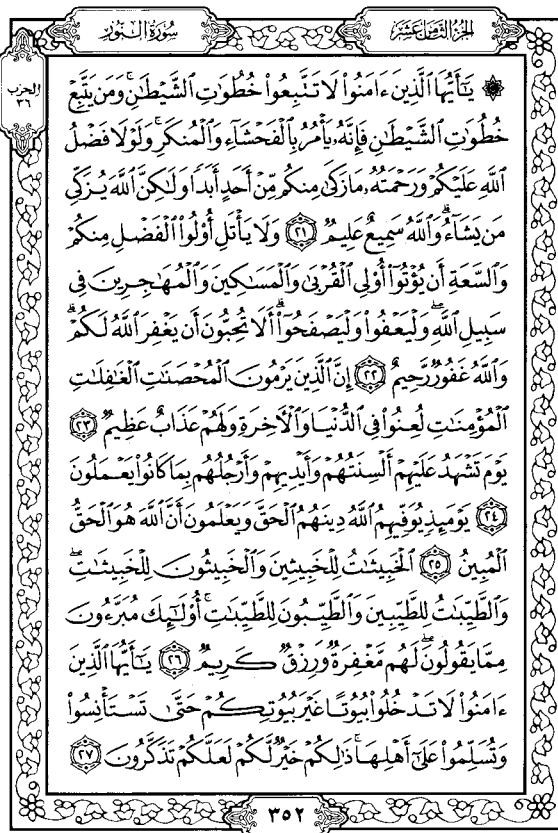 سُورَةُ النُّورِ
الجُزْءُ الثَّامِنَ عَشَرَ
الحزب
٣٦
۞ يَـٰٓأَيُّهَا ٱلَّذِينَ ءَامَنُوا۟ لَا تَتَّبِعُوا۟ خُطُوَٰتِ ٱلشَّيْطَـٰنِ ۚ وَمَن يَتَّبِعْ
خُطُوَٰتِ ٱلشَّيْطَـٰنِ فَإِنَّهُۥ يَأْمُرُ بِٱلْفَحْشَآءِ وَٱلْمُنكَرِ ۚ وَلَوْلَا فَضْلُ
ٱللَّهِ عَلَيْكُمْ وَرَحْمَتُهُۥ مَا زَكَىٰ مِنكُم مِّنْ أَحَدٍ أَبَدًا وَلَـٰكِنَّ ٱللَّهَ يُزَكِّى
مَن يَشَآءُ ۗ وَٱللَّهُ سَمِيعٌ عَلِيمٌ ٢١ وَلَا يَأْتَلِ أُو۟لُوا۟ ٱلْفَضْلِ مِنكُمْ
وَٱلسَّعَةِ أَن يُؤْتُوٓا۟ أُو۟لِى ٱلْقُرْبَىٰ وَٱلْمَسَـٰكِينَ وَٱلْمُهَـٰجِرِينَ فِى
سَبِيلِ ٱللَّهِ ۖ وَلْيَعْفُوا۟ وَلْيَصْفَحُوٓا۟ ۗ أَلَا تُحِبُّونَ أَن يَغْفِرَ ٱللَّهُ لَكُمْ ۗ
وَٱللَّهُ غَفُورٌ رَّحِيمٌ ٢٢ إِنَّ ٱلَّذِينَ يَرْمُونَ ٱلْمُحْصَنَـٰتِ ٱلْغَـٰفِلَـٰتِ
ٱلْمُؤْمِنَـٰتِ لُعِنُوا۟ فِى ٱلدُّنْيَا وَٱلْـَٔاخِرَةِ وَلَهُمْ عَذَابٌ عَظِيمٌ ٢٣
يَوْمَ تَشْهَدُ عَلَيْهِمْ أَلْسِنَتُهُمْ وَأَيْدِيهِمْ وَأَرْجُلُهُم بِمَا كَانُوا۟ يَعْمَلُونَ
٢٤ يَوْمَئِذٍ يُوَفِّيهِمُ ٱللَّهُ دِينَهُمُ ٱلْحَقَّ وَيَعْلَمُونَ أَنَّ ٱللَّهَ هُوَ ٱلْحَقُّ
ٱلْمُبِينُ ٢٥ ٱلْخَبِيثَـٰتُ لِلْخَبِيثِينَ وَٱلْخَبِيثُونَ لِلْخَبِيثَـٰتِ ۖ
وَٱلطَّيِّبَـٰتُ لِلطَّيِّبِينَ وَٱلطَّيِّبُونَ لِلطَّيِّبَـٰتِ ۚ أُو۟لَـٰٓئِكَ مُبَرَّءُونَ
مِمَّا يَقُولُونَ ۖ لَهُم مَّغْفِرَةٌ وَرِزْقٌ كَرِيمٌ ٢٦ يَـٰٓأَيُّهَا ٱلَّذِينَ
ءَامَنُوا۟ لَا تَدْخُلُوا۟ بُيُوتًا غَيْرَ بُيُوتِكُمْ حَتَّىٰ تَسْتَأْنِسُوا۟
وَتُسَلِّمُوا۟ عَلَىٰٓ أَهْلِهَا ۚ ذَٰلِكُمْ خَيْرٌ لَّكُمْ لَعَلَّكُمْ تَذَكَّرُونَ ٢٧
٣٥٢